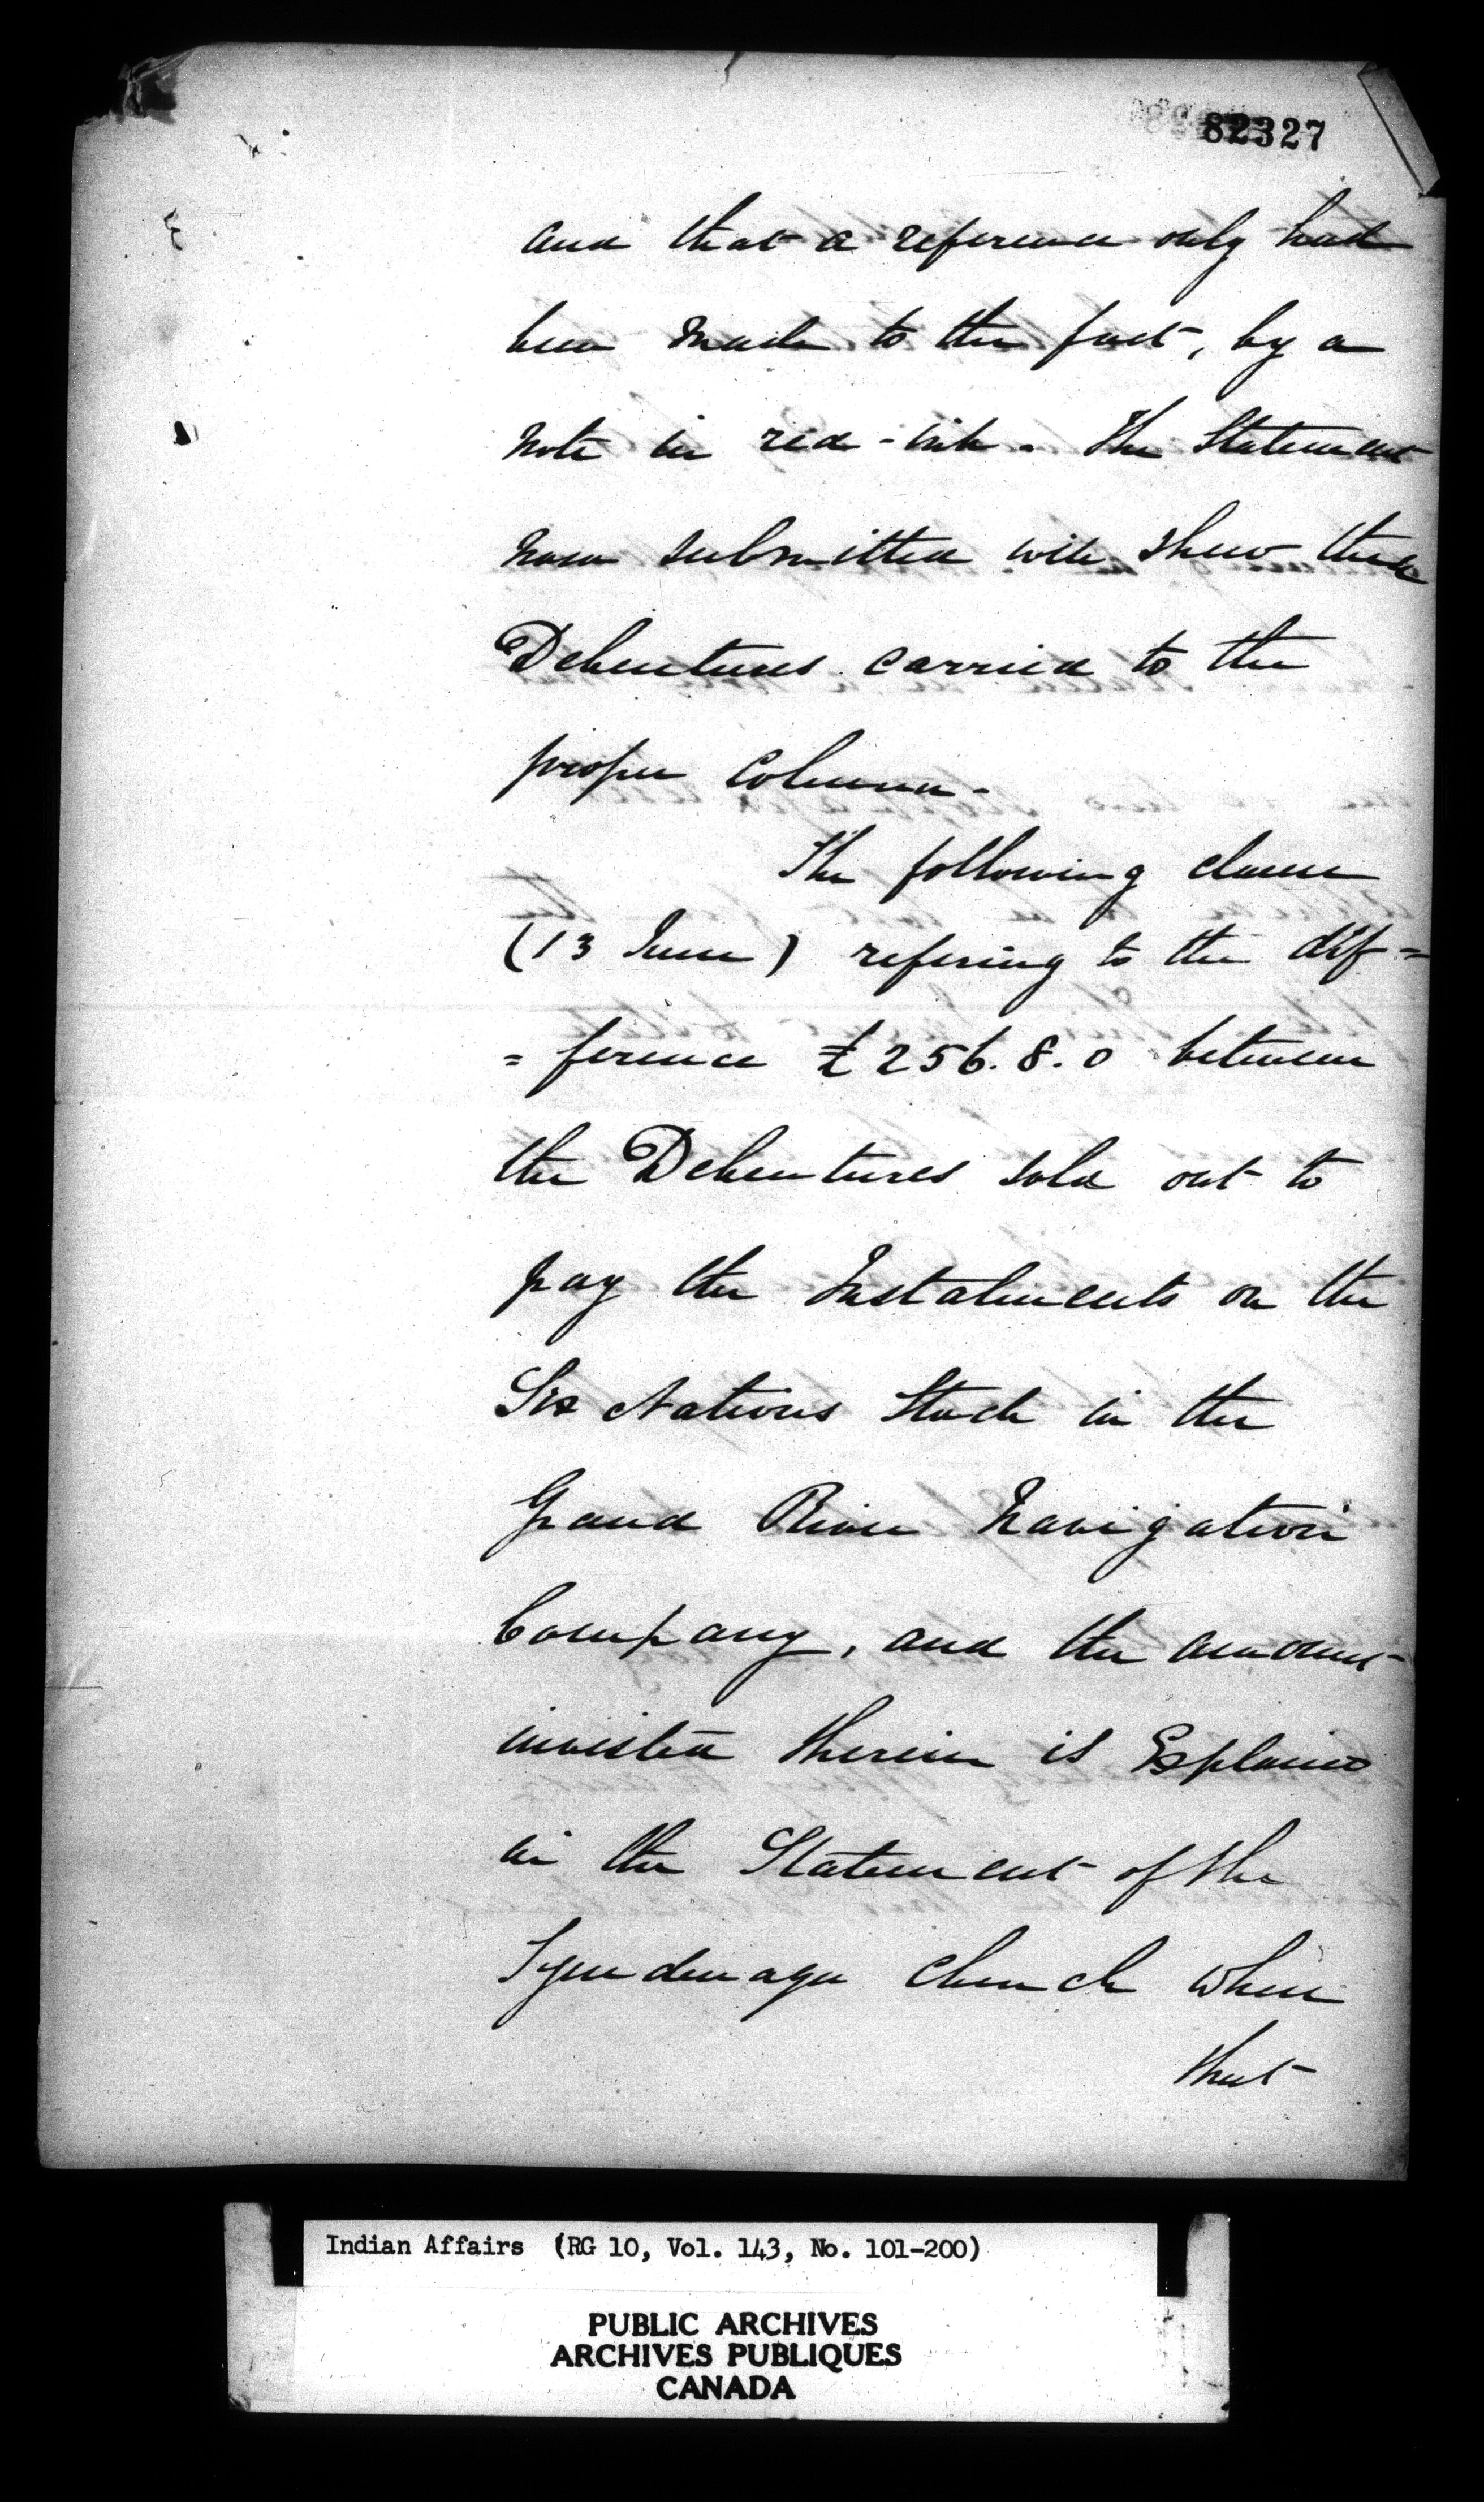 82327
and that a reference only had
been made to the fact, by a
note in red-ink. The Statement
now submitted will shew these
Debentures carried to the
proper Column.
The following clause
(13 June) refering to the dif=
=ference £256.8.0 between
the Debentures sold out to
pay the Instalments on the
Six Nations Stock in the
Grand River Navigation
Company, and the amount
invested therein is Explained
in the Statement of the
Tyendenaga Church where
that
Indian Affairs (RG 10, Vol. 143, No. 101-200)
PUBLIC ARCHIVES
ARCHIVES PUBLIQUES
CANADA